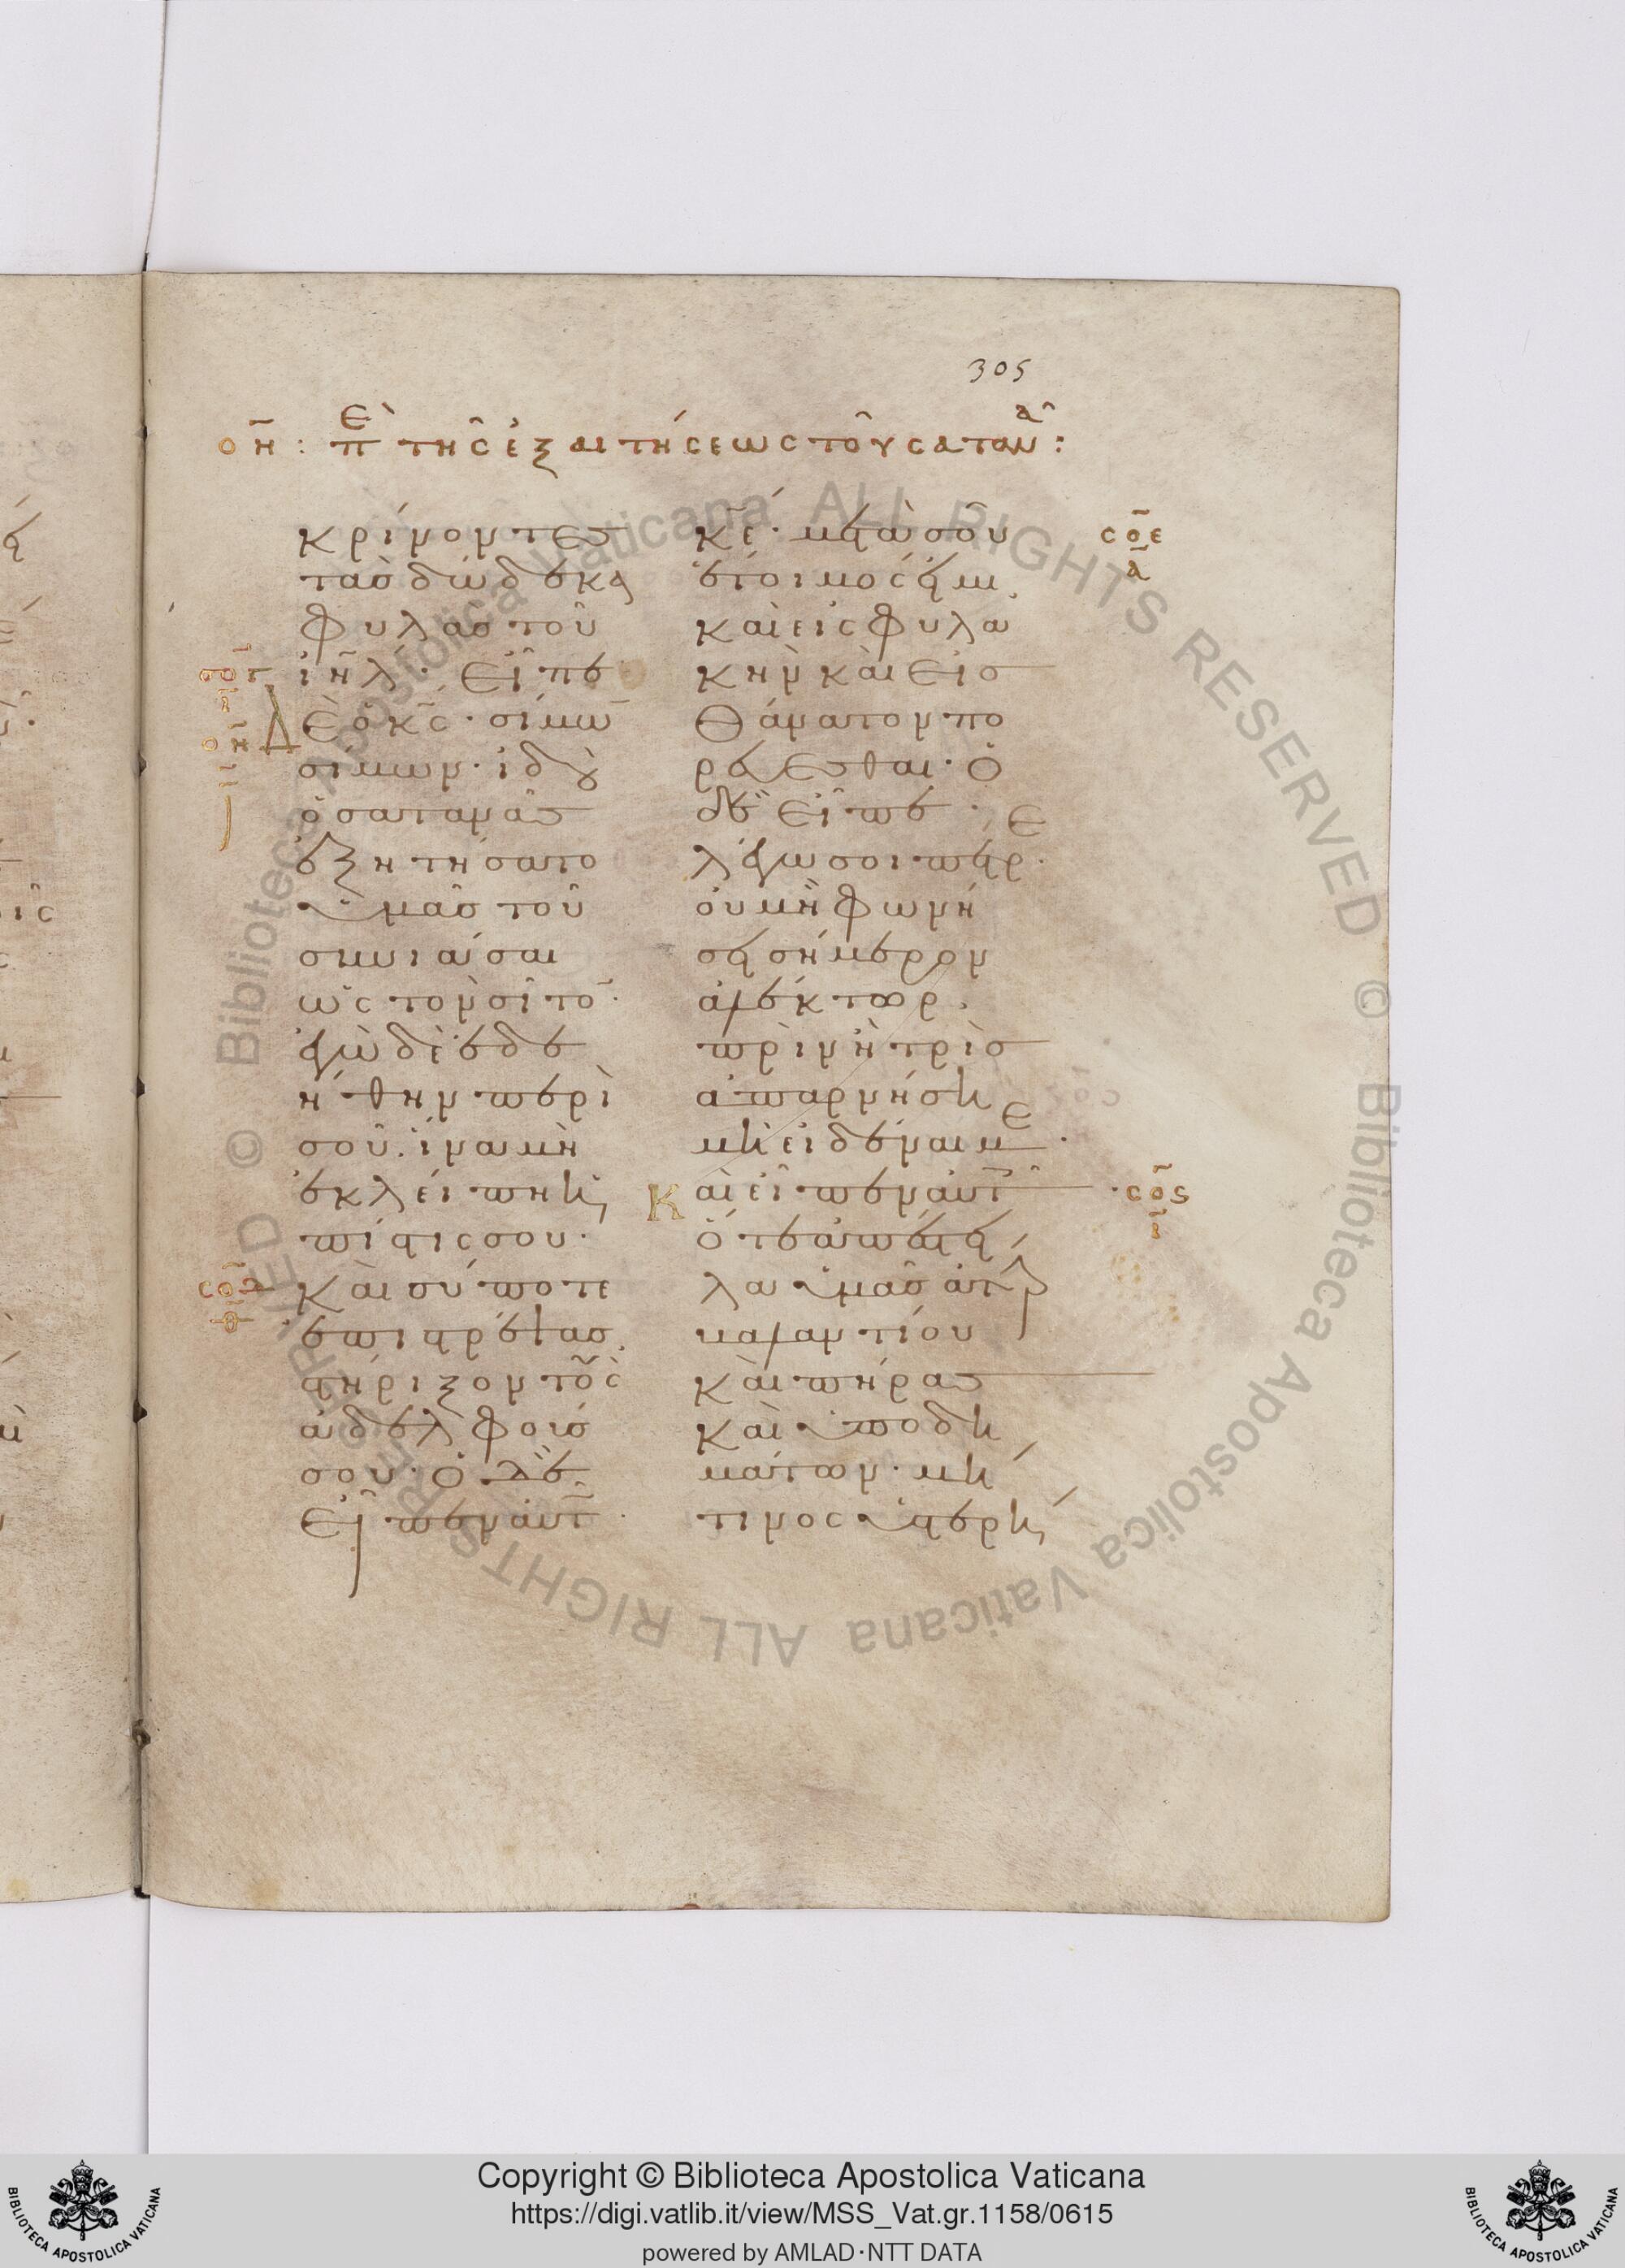 305
ο̅η̅ : Περὶ τῆς ἐξαιτήσεως τοῦ σατανᾶ :
κρίνοντες
τὰς δώδεκα
φυλὰς τοῦ
ι̅η̅λ̅· εἶπε
δὲ ὁ κ̅ς̅· σίμω̅
σίμων· ἰδοὺ
ὁ σατανᾶς
ἐξητήσατο
ὑμᾶς τοῦ
σινιάσαι
ὡς τὸν σῖτο̅·
ἐγὼ δὲ ἐδε
ήθην περὶ
σοῦ· ἵνα μὴ
ἐκλείπη ἡ
πίστις σου·
καὶ σύ ποτε
ἐπιστρέψας
στήριξον τοὺς
ἀδελφούς
σου· ὁ δὲ
εἶπεν αὐτῶ·
κ̅ε̅· μετὰ σοῦ
ἕτοιμός εἰμι
καὶ εἰς φυλα
κὴν καὶ εἰς
θάνατον πο
ρεύεσθαι· ὁ
δὲ εἶπε·
λέγω σοι πέτρε·
οὐ μὴ φωνή
σει σήμερον
ἀλέκτωρ·
πρὶν ἢ τρὶς
ἀπαρνήση
μὴ εἰδέναι με·
Καὶ εἶπεν αὐτοῖς
ὅτε ἀπέστει
λα ὑμᾶς ἄτερ
βαλαντίου
καὶ πήρας
καὶ ὑποδη
μάτων· μή
τινος ὑστερή
σ̅ο̅ε̅
α̅
σ̅ο̅ς̅
ο̅η̅
Copyright © Biblioteca Apostolica Vaticana
https://digi.vatlib.it/view/MSS_Vat.gr.1158/0615
powered by AMLAD·NTT DATA
BIBLIOTECA APOSTOLICA VATICANA
BIBLIOTECA APOSTOLICA VATICANA
© Biblioteca Apostolica Vaticana ALL RIGHTS RESERVED © Biblioteca Apostolica Vaticana ALL RIGHTS RESERVED